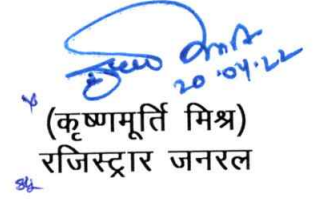 20.04.22
(कृष्णमूर्ति मिश्र)
रजिस्ट्रार जनरल